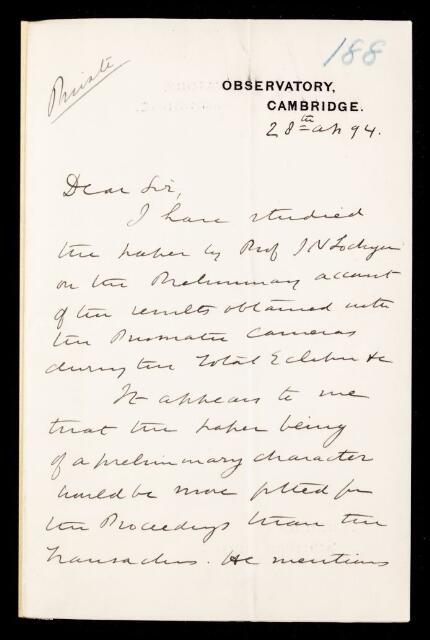 188
Private
OBSERVATORY,
CAMBRIDGE.
28th Ap 94.
Dear Sir,
I have studied
the paper by Prof J N Lockyer
on the Preliminary account
of the results obtained with
the Prismatic Cameras
during the Total Eclipse &c
It appears to me
that the paper being
of a preliminary character
would be more fitted for
the Proceedings than the
Transactions. He mentions